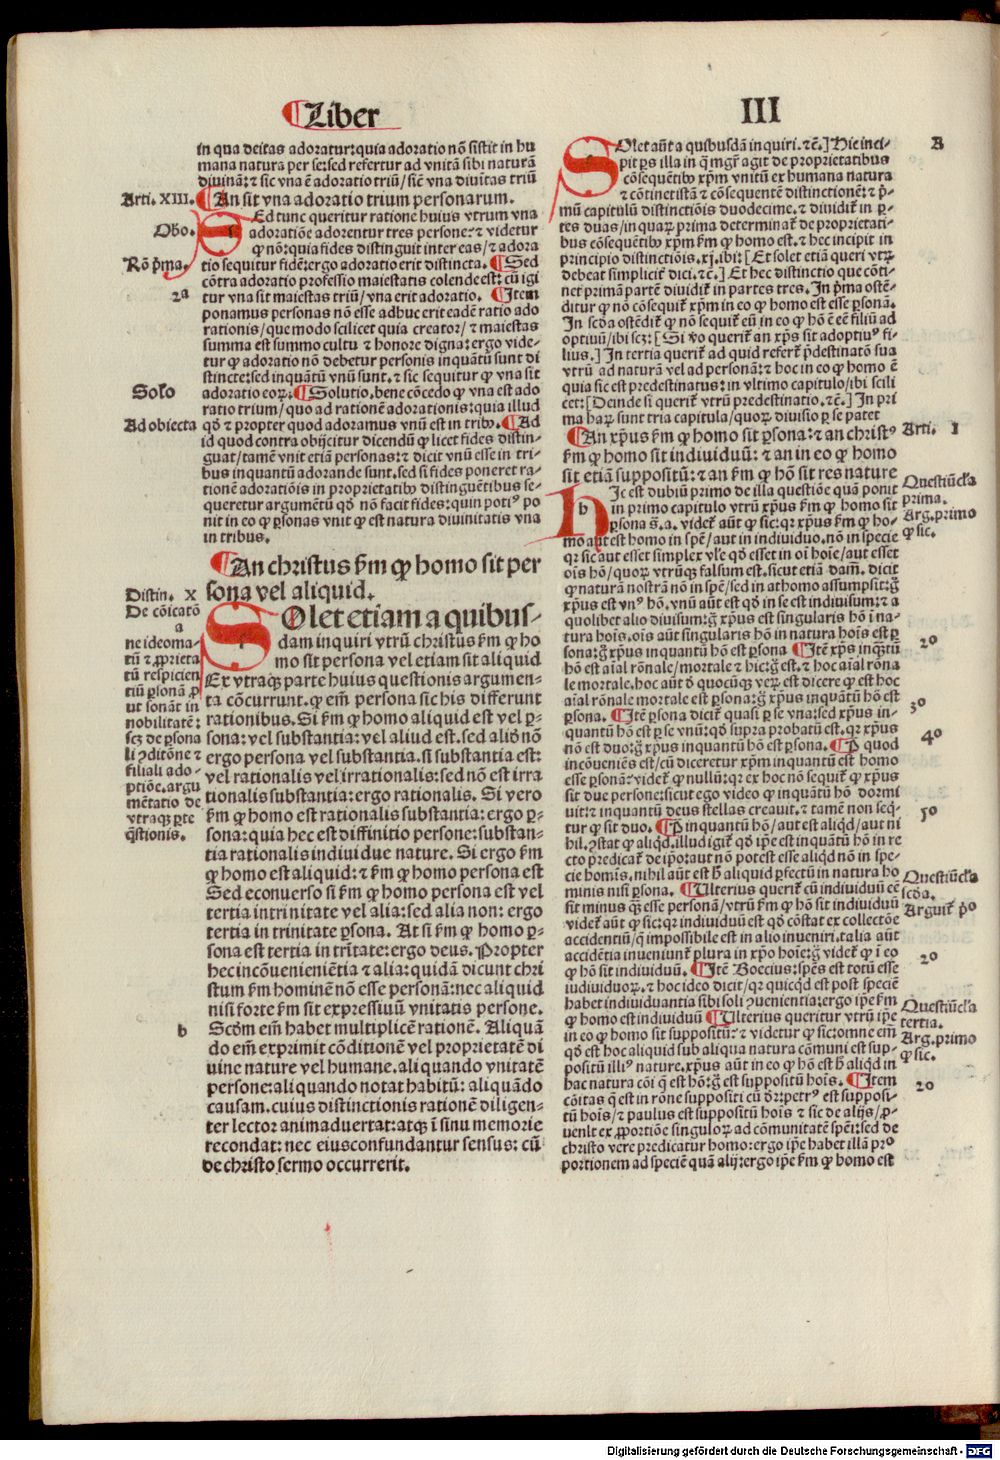 ¶Liber
III
in qua deitas adoratur: quia adoratio nō sistit in hu
mana natura per se: sed refertur ad vnitā sibi naturā
diuinā: ⁊ sic vna ē adoratio triū/ sic vna diuītas triū
Arti. XIII.
¶An sit vna adoratio trium personarum.
Obo.
Sed tunc queritur ratione huius vtrum vna
adoratiōe adorentur tres persone: ⁊ videtur
ꝙ nō: quia fides distinguit inter eas/ ⁊ adora
Rō p̄ma.
tio sequitur fidē: ergo adoratio erit distincta. ¶Sed
cōtra adoratio professio maiestatis colende est: cū igi
2ᵃ
tur vna sit maiestas triū/ vna erit adoratio. ¶Item
ponamus personas nō esse adhuc erit eadē ratio ado
rationis/ que modo scilicet quia creator/ ⁊ maiestas
summa est summo cultu ⁊ honore digna: ergo vide-
tur ꝙ adoratio nō debetur personis inquātū sunt di
stincte: sed inquātū vnū sunt. ⁊ sic sequitur ꝙ vna sit
Solo
adoratio eoꝝ. ¶Solutio. bene cōcedo ꝙ vna est ado
ratio trium/ quo ad rationē adorationis: quia illud
Ad obiecta
qd̄ ⁊ propter quod adoramus vnū est in tribꝰ. ¶Ad
id quod contra obijcitur dicendū ꝙ licet fides distin-
guat/ tamē vnit etiā personas: ⁊ dicit vnū esse in tri-
bus inquantū adorande sunt. sed si fides poneret ra-
tionē adoratiōis in proprietatibꝰ distinguētibus se-
queretur argumētū qd̄ nō facit fides: quin potiꝰ po
nit in eo ꝙ ꝑsonas vnit ꝙ est natura diuinitatis vna
in tribus.
¶An christus ẜm ꝙ homo sit per
sona vel aliquid.
Distin. X
De cōicatō
a
ne ideoma-
tū ⁊ ꝓprieta
tū respicien
tiū ꝑsonā ꝓ
ut sonāt in
nobilitatē:
scꝫ de ꝑsona
li ꝯditōne ⁊
filiali ado-
ptiōe. argu
mētatio de
vtraqꝫ ꝑte
q̄stionis.
Solet etiam a quibus-
dam inquiri vtrū christus ẜm ꝙ ho
mo sit persona vel etiam sit aliquid
Ex vtraqꝫ parte huius questionis argumen-
ta cōcurrunt. ꝙ em̄ persona sic his differunt
rationibus. Si ẜm ꝙ homo aliquid est vel ꝑ-
sona: vel substantia: vel aliud est. sed aliō nō
ergo persona vel substantia. si substantia est:
vel rationalis vel irrationalis: sed nō est irra
tionalis substantia: ergo rationalis. Si vero
ẜm ꝙ homo est rationalis substantia: ergo ꝑ-
sona: quia hec est diffinitio persone: substan-
tia rationalis indiuidue nature. Si ergo ẜm
ꝙ homo est aliquid: ⁊ ẜm ꝙ homo persona est
Sed econuerso si ẜm ꝙ homo persona est vel
tertia in trinitate vel alia: sed alia non: ergo
tertia in trinitate ꝑsona. At si ẜm ꝙ homo ꝑ-
sona est tertia in trītate: ergo deus. Propter
hec incōuenieniētia ⁊ alia: quidā dicunt chri
stum ẜm hominē nō esse personā: nec aliquid
nisi forte ẜm sit expressiuū vnitatis persone.
b
Scd̄m em̄ habet multiplicē rationē. Aliquā
do em̄ exprimit cōditionē vel proprietatē di
uine nature vel humane. aliquando vnitatē
persone: aliquando notat habitū: aliquādo
causam. cuius distinctionis rationē diligen-
ter lector animaduertat: atqꝫ ī sinu memorie
recondat: nec eius confundantur sensus: cū
de christo sermo occurrerit.
A
Solet aūt a quibusdā inquiri. ⁊c̄.] Hic inci-
pit ps illa in q̄ mgr̄ agit de proprietatibus
cōsequētibꝰ xp̄m vnitū ex humana natura
⁊ cōtinet istā ⁊ cōsequentē distinctionē: ⁊ p̄-
mū capitulū distinctiōis duodecime. ⁊ diuidit̄ in ꝑ-
tes duas/ in quaꝝ prima determinat̄ de proprietati-
bus cōsequētibꝰ xp̄m ẜm ꝙ homo est. ⁊ hec incipit in
principio distinctiōis. xj. ibi: [Et solet etiā queri vtꝝ
debeat simplicit̄ dici. ⁊c̄.] Et hec distinctio que cōti-
net primā partē diuidit̄ in partes tres. In p̄ma ostē-
ditur ꝙ nō cōsequit̄ xp̄m in eo ꝙ homo est esse ꝑsonā.
In scd̄a ostēdit̄ ꝙ nō sequit̄ eū in eo ꝙ hō ē eē filiū ad
optiuū/ ibi scꝫ: [Si vo querit̄ an xp̄s sit adoptiuꝰ fi-
lius.] In tertia querit̄ ad quid refert̄ p̄destinatō sua
vtrū ad naturā vel ad personā: ⁊ hoc in eo ꝙ homo ē
quia sic est predestinatus: in vltimo capitulo/ ibi scili
cet: [Deinde si querit̄ vtrū predestinatio. ⁊c̄.] In pri
ma haꝝ sunt tria capitula/ quoꝝ diuisio ꝑ se patet
Arti. I
¶An xp̄us ẜm ꝙ homo sit ꝑsona: ⁊ an christꝰ
ẜm ꝙ homo sit indiuiduū: ⁊ an in eo ꝙ homo
sit etiā suppositū: ⁊ an ẜm ꝙ hō sit res nature
Questiūcl̄a
prima.
Arg. primo
ꝙ sic.
b
Hic est dubiū primo de illa questiōe quā ponit
in primo capitulo vtrū xp̄us ẜm ꝙ homo sit
ꝑsona s̄. a. videt̄ aūt ꝙ sic: qꝛ xp̄us ẜm ꝙ ho-
mo aut est homo in spē/ aut in indiuiduo. nō in specie
qꝛ sic aut esset simplex vl̄e qd̄ esset in oī hoīe/ aut esset
ois hō/ quoꝝ vtrūqꝫ falsum est. sicut etiā dam̄. dicit
ꝙ naturā nostrā nō in spē/ sed in athomo assumpsit: g̊
xp̄us est vnꝰ hō. vnū aūt est qd̄ in se est indiuisum: ⁊ a
quolibet alio diuisum: g̊ xp̄us est singularis hō ī na-
tura hois. ois aūt singularis hō in natura hois est ꝑ
2o
sona: g̊ xp̄us inquantū hō est ꝑsona ¶Itē xp̄s inq̄ntū
hō est aīal rōnale/ mortale ⁊ hic: g̊ est. ⁊ hoc aīal rōna
le mortale. hoc aūt d̄ quocūqꝫ veꝝ est dicere ꝙ est hoc
aīal rōnale mortale est ꝑsona: g̊ xp̄us inquātū hō est
3o
ꝑsona. ¶Itē ꝑsona dicit̄ quasi ꝑ se vna: sed xp̄us in-
quantū hō est ꝑ se vnū: qd̄ supra probatū est. qꝛ xp̄us
4o
nō est duo: g̊ xp̄us inquantū hō est ꝑsona. ¶P quod
incōueniēs est/ cū diceretur xp̄m inquantū est homo
esse ꝑsonā: videt̄ ꝙ nullū: qꝛ ex hoc nō sequit̄ ꝙ xp̄us
sit due persone: sicut ego video ꝙ inquātū hō dormi
uit: ⁊ inquantū deus stellas creauit. ⁊ tamē non seq̄-
5o
tur ꝙ sit duo. ¶P inquantū hō/ aut est aliqd̄/ aut ni
hil. ꝯstat ꝙ aliqd̄. illud igit̄ qd̄ ip̄e est inquātū hō in re
cto p̄dicat̄ de ip̄o: aut nō potest esse aliqd̄ nō in spe-
Questiūcl̄a
scd̄a.
Arguit̄ p̄o
cie homīs. nihil aūt est h̄ aliquid ꝑfectū in natura ho
minis nisi ꝑsona. ¶Ulterius querit̄ cū indiuiduū eē
sit minus q̄ꝫ esse personā/ vtrū ẜm ꝙ hō sit indiuiduū
videt̄ aūt ꝙ sic: qꝛ indiuiduū est qd̄ cōstat ex collectōe
accidentiū/ q̄ impossibile est in alio inueniri. talia aūt
2o
accidētia inueniunt̄ plura in xp̄o hoīe: g̊ videt̄ ꝙ ī eo
ꝙ hō sit indiuiduū. ¶Itē Boecius: spēs est totū esse
iudiuiduoꝝ. ⁊ hoc ideo dicit/ qꝛ quicqd̄ est post speciē
Questiūcl̄a
tertia.
Arg. primo
ꝙ sic.
habet indiuiduantia sibi soli ꝯuenientia: ergo ip̄e ẜm
ꝙ homo est indiuiduū ¶Ulterius queritur vtrū ip̄e
in eo ꝙ homo sit suppositū: ⁊ videtur ꝙ sic: omne em̄
qd̄ est hoc aliquid sub aliqua natura cōmuni est sup-
positū illiꝰ nature. xp̄us aūt in eo ꝙ hō est h̄ aliqd̄ in
2o
hac natura cōi q̄ est hō: g̊ est suppositū hois. ¶Item
cōitas q̄ est in rōne suppositi cū dr̄: petrꝰ est supposi-
tū hois/ ⁊ paulus est suppositū hois ⁊ sic de alijs/ ꝓ-
uenit ex ꝓportiōe singuloꝝ ad cōmunitatē spēi: sed de
christo vere predicatur homo: ergo ip̄e habet illā pr̄o
portionem ad speciē quā alij: ergo ip̄e ẜm ꝙ homo est
Digitalisierung gefördert durch die Deutsche Forschungsgemeinschaft - DFG